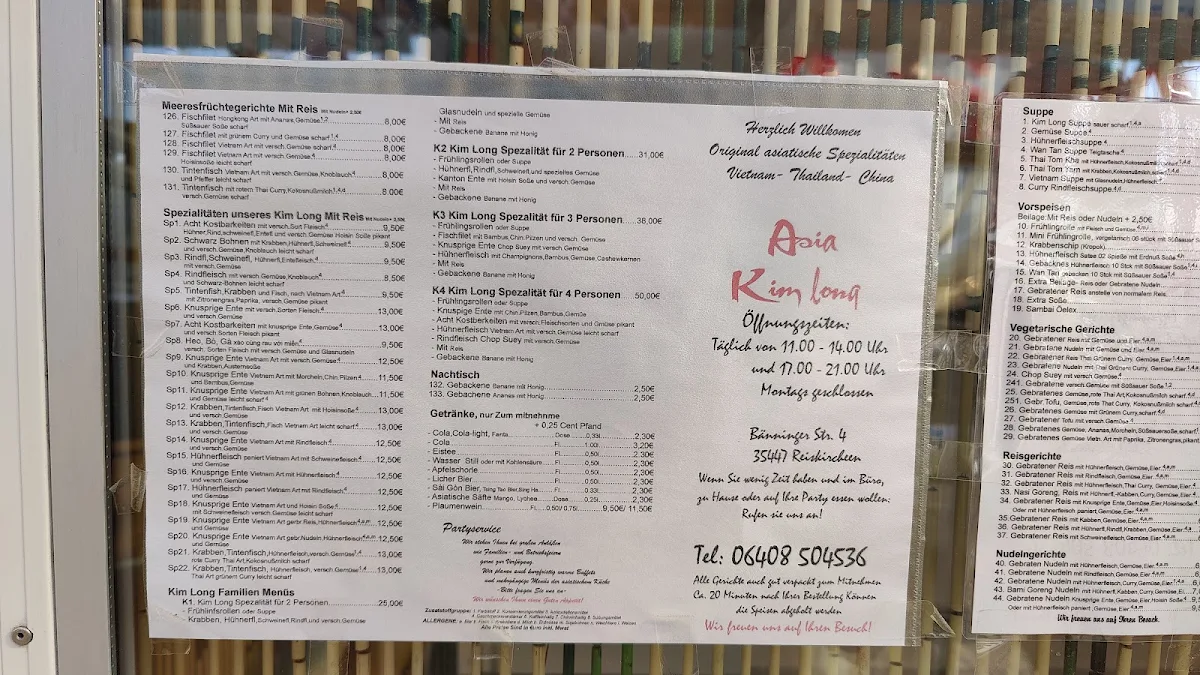 Meeresfrüchtegerichte Mit Reis Mit Nudeln+ 2,50€
126. Fischfilet Hongkong Art mit Ananas,Gemüse1,2 8,00€
Süßsauer Soße scharf
127. Fischfilet mit grünem Curry und Gemüse scharf1,4 8,00€
128. Fischfilet Vietnam Art mit versch.Gemüse scharf4 8,00€
129. Fischfilet Vietnam Art mit versch.Gemüse4 8,00€
Hoisinsoße leicht scharf
130. Tintenfisch Vietnam Art mit versch.Gemüse,Knoblauch4 8,00€
und Pfeffer leicht scharf
131. Tintenfisch mit rotem Thai Curry,Kokosnußmilch1,4,d 8,00€
versch.Gemüse scharf
Spezialitäten unseres Kim Long Mit Reis Mit Nudeln+ 2,50€
Sp1. Acht Kostbarkeiten mit versch.Sort Fleisch4 9,50€
Hühner,Rind,schweinefl,Entefl und versch.Gemüse Hoisin Soße pikant
Sp2. Schwarz Bohnen mit Krabben,Hühnerfl,Schweinefl4 9,50€
und versch.Gemüse,Knoblauch leicht scharf
Sp3. Rindfl,Schweinefl, Hühnerfl,Entefleisch4 9,50€
mit versch.Gemüse
Sp4. Rindfleisch mit versch.Gemüse,Knoblauch4 8,50€
und Schwarz-Bohnen leicht scharf
Sp5. Tintenfish,Krabben und Fisch, nach Vietnam Art4 9,50€
mit Zitronengras,Paprika, versch.Gemüse pikant
Sp6. Knusprige Ente mit versch.Sorten Fleisch4 13,00€
und versch.Gemüse
Sp7. Acht Kostbarkeiten mit knusprige Ente,Gemüse4 13,00€
und versch.Sorten Fleisch pikant
Sp8. Heo, Bò, Gà xào cùng rau với miến4 9,50€
versch. Sorten Fleisch mit versch.Gemüse und Glasnudeln
Sp9. Knusprige Ente Vietnam Art mit versch.Gemüse4 12,50€
und Krabben,Austernsoße
Sp10. Knusprige Ente Vietnam Art mit Morcheln,Chin.Pilzen4 11,50€
und Bambus,Gemüse
Sp11. Knusprige Ente Vietnam Art mit grünen Bohnen,Knoblauch4 11,50€
und versch.Gemüse leicht scharf
Sp12. Krabben,Tintenfisch,Fisch Vietnam Art mit Hoisinsoße4 13,00€
und versch.Gemüse
Sp13. Krabben,Tintenfisch,Fisch Vietnam Art leicht scharf4 13,00€
und versch.Gemüse
Sp14. Knusprige Ente Vietnam Art mit Rindfleisch4 12,50€
und versch.Gemüse
Sp15. Hühnerfleisch paniert Vietnam Art mit Schweinefleisch4 12,50€
und Gemüse
Sp16. Knusprige Ente Vietnam Art mit Hühnerfleisch4 12,50€
und Gemüse
Sp17. Hühnerfleisch paniert Vietnam Art mit Rindfleisch4 12,50€
und Gemüse
Sp18. Knusprige Ente Vietnam Art mit Hoisin Soße4 12,50€
mit Schweinefleisch versch.Gemüse leicht scharf
Sp19. Knusprige Ente Vietnam Art gebr.Reis,Hühnerfleisch4,a,m 12,50€
und Gemüse
Sp20. Knusprige Ente Vietnam Art gebr.Nudeln,Hühnerfleisch4,a,m 12,50€
und Gemüse
Sp21. Krabben,Tintenfisch,Hühnerfleisch,versch.Gemüse1,4 13,00€
rote Curry Thai Art,Kokosnußmilch leicht scharf
Sp22. Krabben,Tintenfisch, Hühnerfleisch, versch.Gemüse1,4 13,00€
Thai Art grüner Curry leicht scharf
Kim Long Familien Menüs
K1. Kim Long Spezialität für 2 Personen 25,00€
- Frühlinfsrollen oder Suppe
- Krabben, Hühnerfl,Schweinefl,Rindfl und versch.Gemüse
Glasnudeln und spezielle Gemüse
- Mit Reis
- Gebackene Banane mit Honig
K2 Kim Long Spezalität für 2 Personen 31,00€
- Frühlingsrollen oder Suppe
- Hühnerfl,Rindfl,Schweinefl,und spezielles Gemüse
- Kanton Ente mit Hoisin Soße und versch.Gemüse
- Mit Reis
- Gebackene Banane mit Honig
K3 Kim Long Spezalität für 3 Personen 38,00€
- Frühlingsrollen oder Suppe
- Fischfilet mit Bambus,Chin.Pilzen und versch.Gemüse
- Knusprige Ente Chop Suey mit versch.Gemüse
- Hühnerfleisch mit Champignons,Bambus,Gemüse,Cashewkernen
- Mit Reis
- Gebackene Banane mit Honig
K4 Kim Long Spezalität für 4 Personen 50,00€
- Frühlingsrollen oder Suppe
- Knuspige Ente mit Chin.Pilzen,Bambus,Gemüse
- Acht Kostbarkeiten mit versch.Fleischsorten und Gmüse pikant
- Hühnerfleisch Vietnam Art mit versch.Gemüse leicht scharf
- Rindfleisch Chop Suey mit versch.Gemüse
- Mit Reis
- Gebackene Banane mit Honig
Nachtisch
132. Gebackene Banane mit Honig 2,50€
133. Gebackene Ananas mit Honig 2,50€
Getränke, nur Zum mitnehme
+ 0,25 Cent Pfand
- Cola,Cola-light, Fanta Dose 0,33l 2,30€
- Cola Fl. 1,00l 3,20€
- Eistee Fl. 0,50l 2,30€
- Wasser Still oder mit Kohlensäure Fl. 0,50l 2,30€
- Apfelschorle Fl. 0,50l 2,30€
- Licher Bier Fl. 0,50l 2,30€
- Sài Gòn Bier, Tsing Tao Bier,Sing Ha Fl. 0,33l 2,30€
- Asiatische Säfte Mango, Lychee Dose 0,25l 2,30€
- Plaumenwein Fl. 0,50l/ 0,75l 9,50€/ 11,50€
Partyservice
Wir stehen Ihnen bei großen Anläßen
wie Familien- und Betriebsfeiern
gerne zur Verfügung
Wir planen auch kurzfristig warme Buffets
und mehrgängige Menüs der asiatischen Küche
-Bitte fragen Sie uns an-
Wir wünschen Ihnen einen Guten Appetit!
Alle Preise Sind in €uro inkl. Mwst
Herzlich Willkomen
Original asiatische Spezialitäten
Vietnam- Thailand- China
Asia
Kim long
Öffnungszeiten:
Täglich von 11.00 - 14.00 Uhr
und 17.00 - 21.00 Uhr
Montags geschlossen
Bänninger Str. 4
35447 Reiskirchen
Wenn Sie wenig Zeit haben und im Büro,
zu Hause oder auf Ihre Party essen wollen:
Rufen sie uns an!
Tel: 06408 504536
Alle Gerichte auch gut verpackt zum Mitnehmen
Ca. 20 Minuten nach Ihrer Bestellung Können
die Speisen abgeholt werden
Wir freuen uns auf Ihren Besuch!
Suppe
1. Kim Long Suppe sauer scharf1,4,a
2. Gemüse Suppe4
3. Hühnerfleischsuppe4
4. Wan Tan Suppe Teigtasche4
5. Thai Tom Kha mit Hühnerfleisch,Kokosnußmilch
6. Thai Tom Yam mit Krabben,Gemüse
7. Vietnam Suppe mit Glasnudeln,Hühnerfleisch
8. Curry Rindfleischsuppe
Vorspeisen
Beilage:Mit Reis oder Nudeln + 2,50€
10. Frühlingrolle mit Fleisch und Gemüse
11. Mini Frühlingrolle, vergetarisch 06 stück mit Süßsauer
12. Krabbenschip (Kropok)
13. Hühnerfleisch Satee 02 Spieße mit Erdnuß Soße
14. Gebacknes Hühnerfleisch 10 Stok mit Süßsauer Soße
15. Wan Tan gebacken 10 Stok mit Süßsauer Soße
16. Extra Beilage- Reis oder Gebratene Nudeln
17. Gebratener Reis anstelle von normalem Reis
18. Extra Soße
19. Sambal Oelex
Vegetarische Gerichte
20. Gebratener Reis mit Gemüse und Eier
21. Gebratene Nudeln mit Gemüse und Eier
22. Gebratener Reis Thai Grünem Curry, Gemüse,Eier
23. Gebratene Nudeln mit Thai Grünem Curry, Gemüse,Eier
24. Chop Suey mit versch.Gemüse
241. Gebratene versch.Gemüse mit Süßsauer Soße
25. Gebratenes Gemüse,rote Thai Art,Kokosnußmilch scharf
251. Gebr.Tofu, Gemüse,rote Thai Curry, Kokosnußmilch scharf
26. Gebratenes Gemüse mit Grünem Curry,scharf
27. Gebratener Tofu mit versch.Gemüse
28. Gebratenes Gemüse, Ananas,Morcheln,Süßsauersoße,scharf
29. Gebratenes Gemüse Vietn. Art mit Paprika, Zitronengras,pikant
Reisgerichte
30. Gebratener Reis mit Hühnerfleisch,Gemüse,Eier
31. Gebratener Reis mit Rindfleisch,Gemüse,Eier
32. Gebratener Reis mit Hühnerfleisch,Thai Curry,Gemüse,Eier
33. Nasi Goreng, Reis mit Hühnerfl.-Kabben,Curry,Gemüse,Eier
34. Gebratener Reis mit Knusprige Ente,Gemüse,Eier,Hoisinsoße
Oder mit Hühnerfleisch paniert,Gemüse,Eier
35.Gebratener Reis mit Kabben,Gemüse,Eier
36. Gebratener Reis mit Hühnerfl,Rindfl,Krabben,Curry,Gemüse,Eier
37. Gebratener Reis mit Schweinefleisch,Gemüse,Eier
Nudelngerichte
40. Gebraten Nudeln mit Hühnerfleisch,Gemüse,Eier
41. Gebraten Nudeln mit Rindfleisch,Gemüse,Eier
42. Gebraten Nudeln mit Hühnerfleisch,Curry,Gemüse,Eier
43. Bami Goreng Nudeln mit Hühnerfl,Krabben,Curry,Gemüse
44. Gebraten Nudeln Knusprige Ente,Gemüse,Eier,Hoisin Soße
Oder mit Hühnerfleisch paniert ,Gemüse, Eier
Wir freuen uns auf Ihren Besuch.